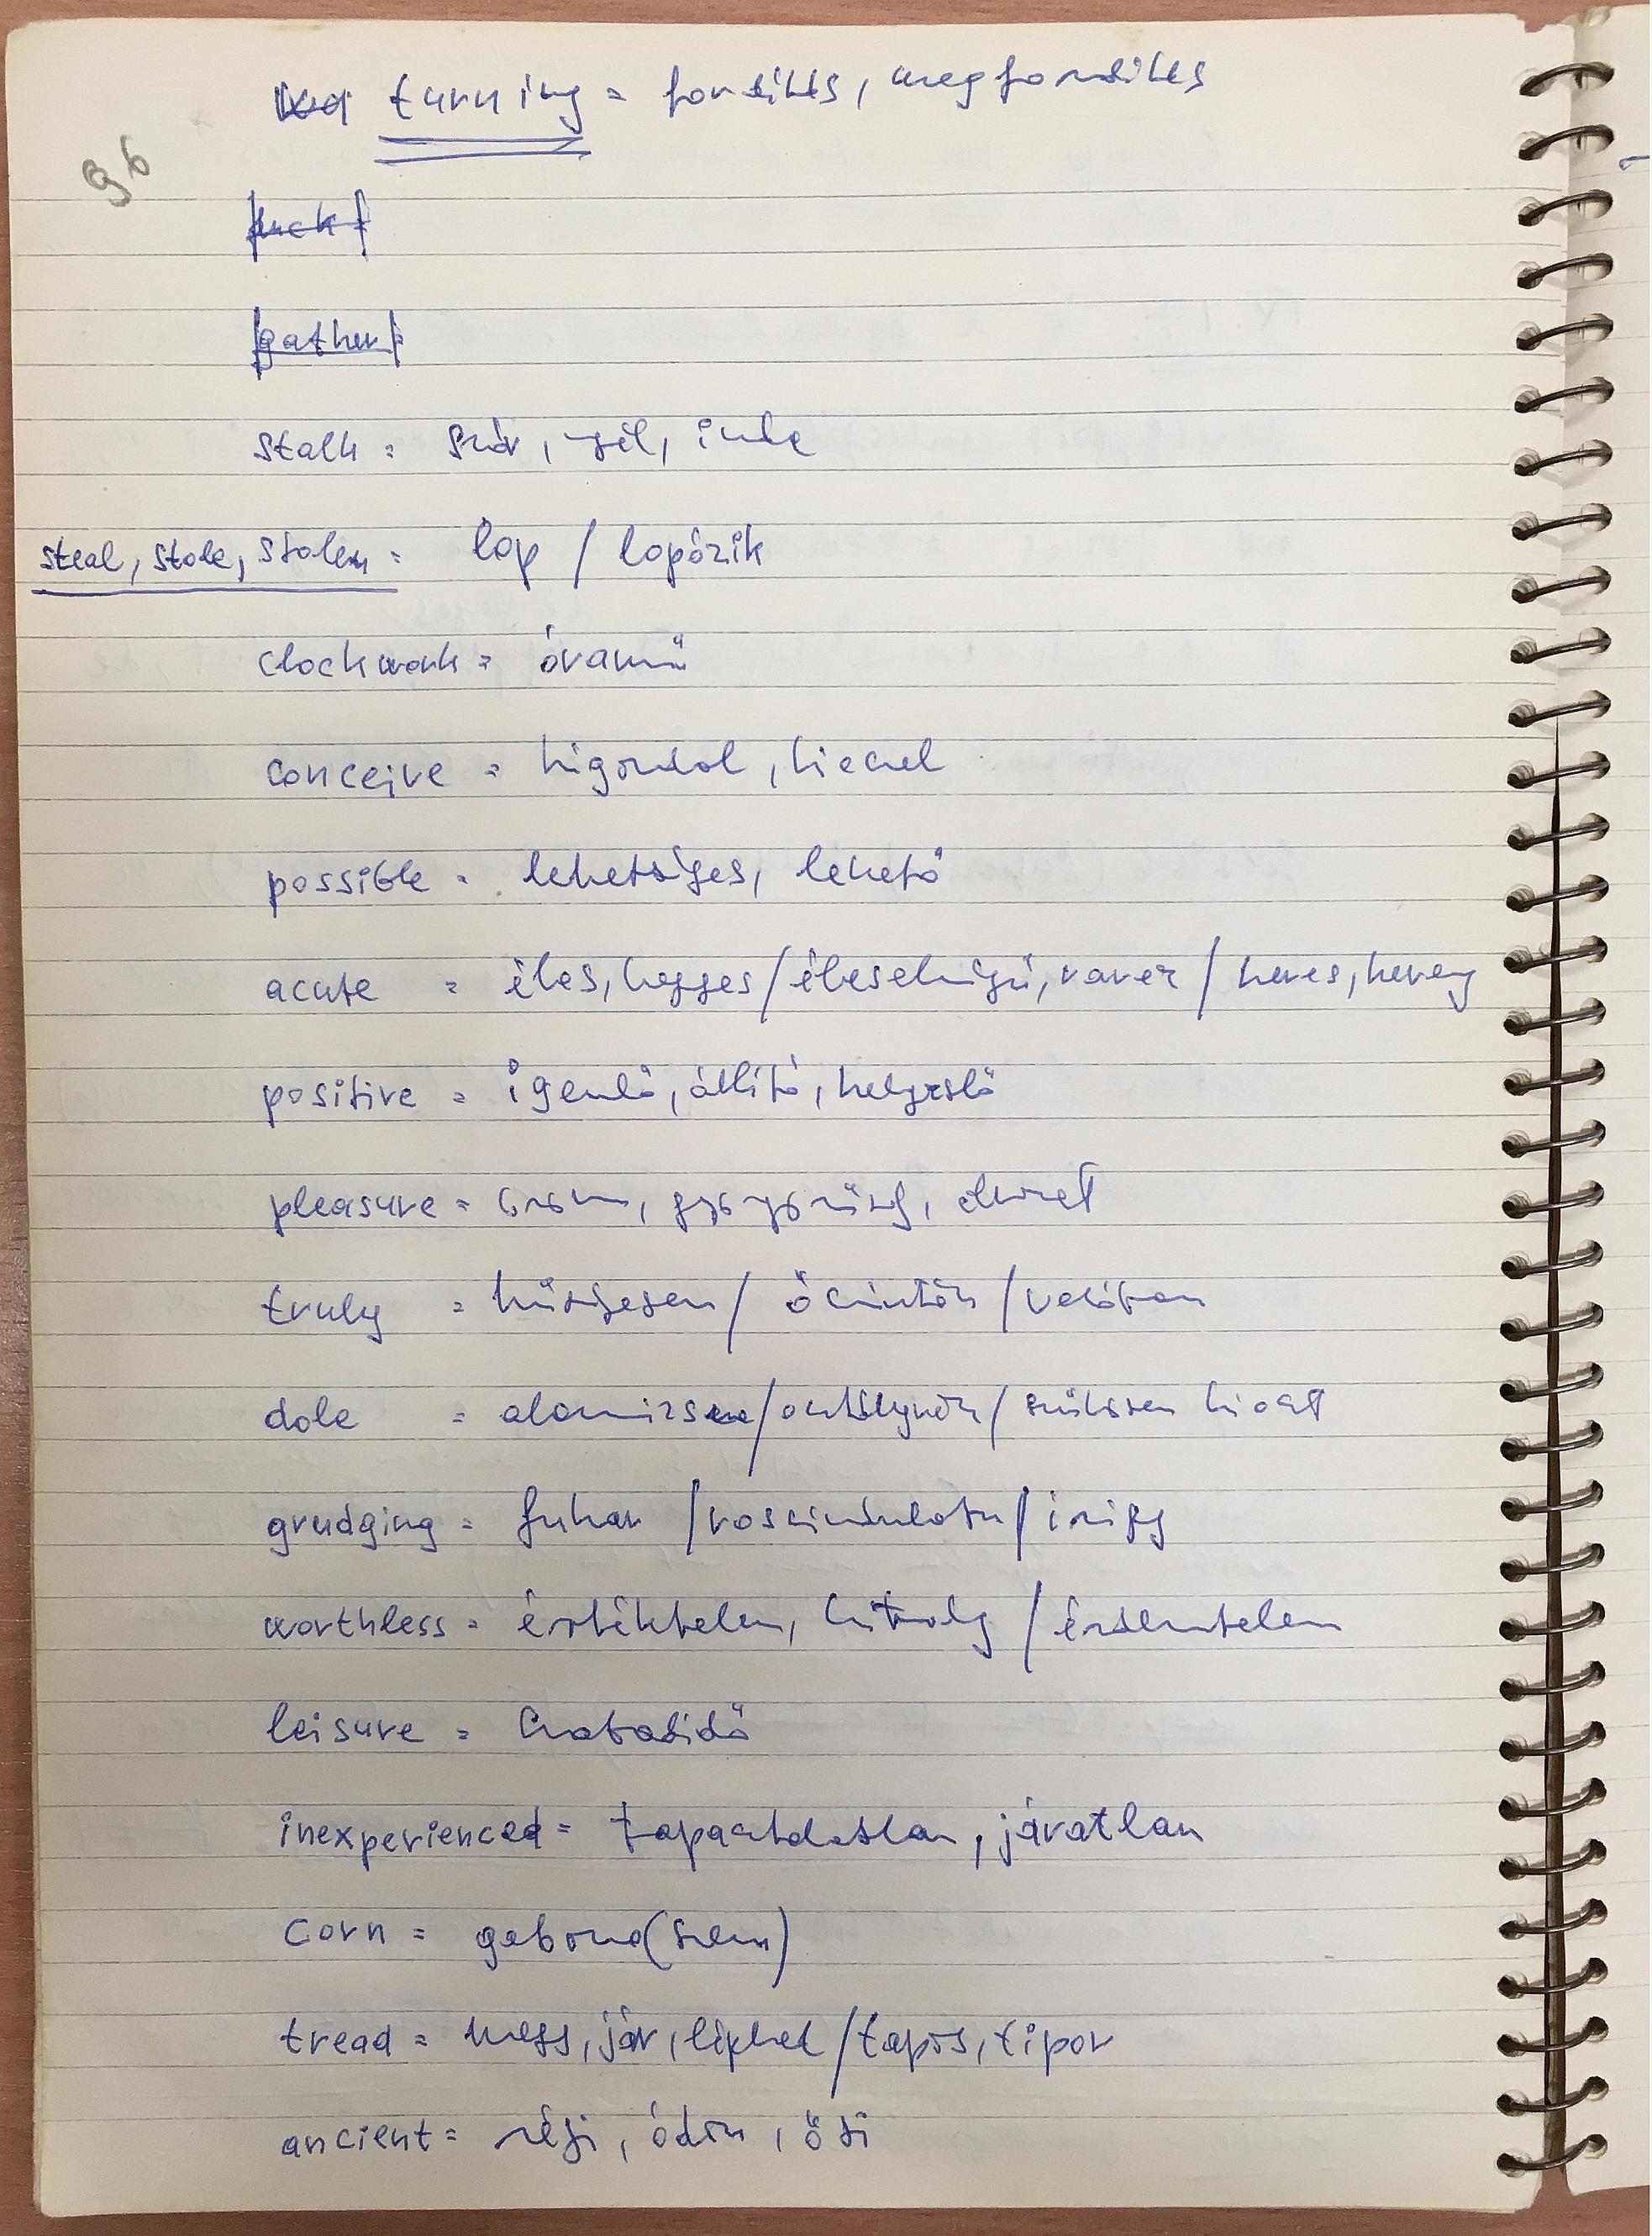 turning = fordítás, megfordítás
96
luck
gather
stalk = szár, nyél, inda
steal, stole, stolen = lop / lopózik
clockwork = óramű
conceive = kigondol, kieszel
possible = lehetséges, lehető
acute = éles, hegyes / éleselméjű, ravasz / heves, heveny
positive = igenlő, állító, helyeslő
pleasure = öröm, gyönyörűség, élvezet
truly = hűségesen / őszintén / valóban
dole = alamizsna / osztályrész / szűkösen kioszt
grudging = fukar / rosszindulatú / irigy
worthless = értéktelen, hitvány / érdemtelen
leisure = szabadidő
inexperienced = tapasztalatlan, járatlan
corn = gabona (szem)
tread = megy, jár, lépked / tapos, tipor
ancient = régi, ódon, ősi